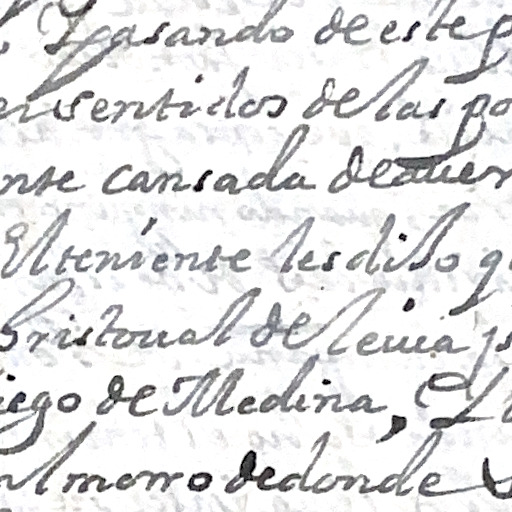 Pasando de este p
en sentidos de las po
nte cansada de auer
El teniente les dixo q
hristoual de leiua ys
iego de Medina, Y
el morro de donde